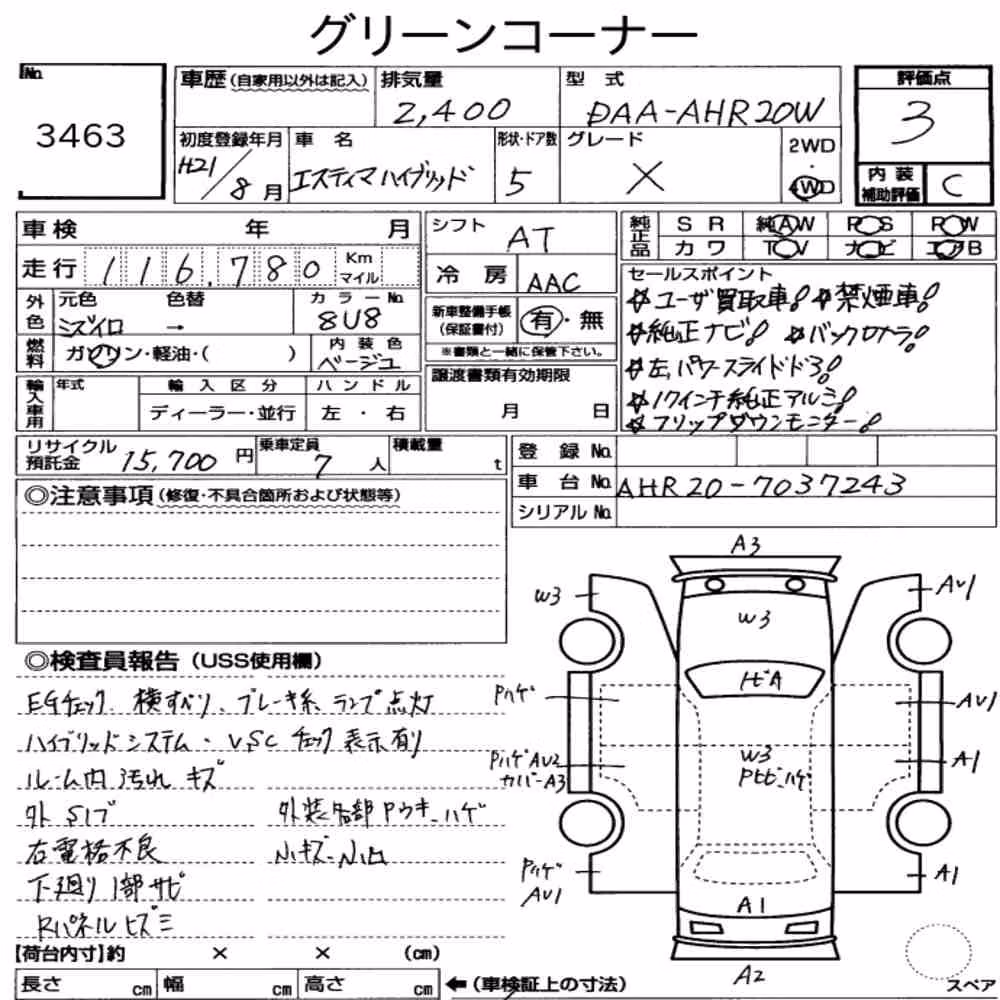 グリーンコーナー
No.
3463
車歴(自家用以外は記入)
排気量
2,400
型 式
DAA-AHR20W
評価点
3
内装補助評価
C
初度登録年月
H21/8月
車 名
エスティマハイブリッド
形状・ドア数
5
グレード
X
2WD
・
4WD
車検 年 月
走行 116,780 Km マイル
外色
元色 色替
ミズイロ →
カラーNo.
8U8
燃料
ガソリン・軽油・( )
内装色
ベージュ
輸入車用
年式
輸入区分
ディーラー・並行
ハンドル
左・右
シフト AT
冷房 AAC
新車整備手帳(保証書付)
有・無
※書類と一緒に保管下さい。
譲渡書類有効期限
月 日
純正品
SR 純AW PS PW
カワ TV ナビ エアB
セールスポイント
☆ユーザ買取車! ☆禁煙車!
☆純正ナビ! ☆バックカメラ!
☆左パワースライドドア!
☆17インチ純正アルミ!
☆フリップダウンモニター!
リサイクル預託金 15,700円
乗車定員 7人
積載量 t
登録No.
車台No. AHR20-7037243
シリアルNo.
◎注意事項(修復・不具合箇所および状態等)
◎検査員報告(USS使用欄)
EGチェック、横すべり、ブレーキ系ランプ点灯
ハイブリッドシステム・VSCチェック表示有り
ルーム内汚れ キズ
外 SIブ 外装各部Pウキ、ハゲ
右電格不良 小キズ・小凹
下廻り1部サビ
Rパネルヒズミ
【荷台内寸】約 × × (cm)
長さ cm 幅 cm 高さ cm
←(車検証上の寸法)
A3
W3
AU1
W3
ヒビA
Pハゲ
AU1
PハゲAU2
カバーA3
W3
Pヒビ、ハゲ
A1
Pハゲ
AU1
A1
A1
A2
スペア